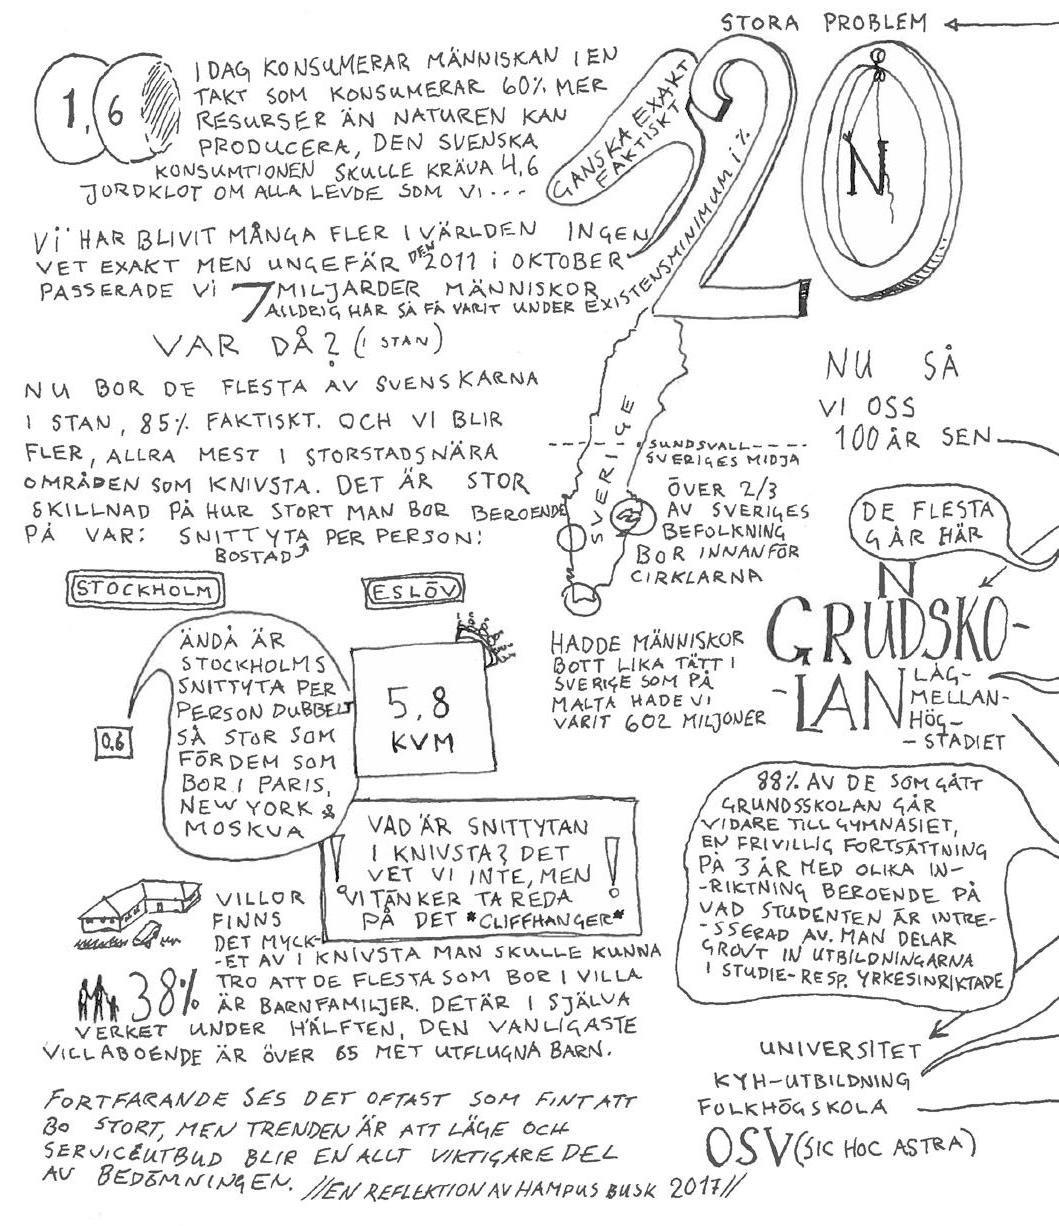 STORA PROBLEM
1,6
I DAG KONSUMERAR MÄNNISKAN I EN
TAKT SOM KONSUMERAR 60% MER
RESURSER ÄN NATUREN KAN
PRODUCERA, DEN SVENSKA
KONSUMTIONEN SKULLE KRÄVA 4,6
JORDKLOT OM ALLA LEVDE SOM VI...
GANSKA EXAKT
FAKTISKT
20
N
VI HAR BLIVIT MÅNGA FLER I VÄRLDEN INGEN
VET EXAKT MEN UNGEFÄR DEN 2011 I OKTOBER
PASSERADE VI 7 MILJARDER MÄNNISKOR
ALLDRIG HAR SÅ FÅ VARIT UNDER EXISTENSMINIMUM I %
VAR DÅ? (I STAN)
NU BOR DE FLESTA AV SVENSKARNA
I STAN, 85% FAKTISKT. OCH VI BLIR
FLER, ALLRA MEST I STORSTADSNÄRA
OMRÅDEN SOM KNIVSTA. DET ÄR STOR
SKILLNAD PÅ HUR STORT MAN BOR BEROENDE
PÅ VAR: SNITTYTA PER PERSON:
BOSTAD
STOCKHOLM
ESLÖV
ÄNDÅ ÄR
STOCKHOLMS
SNITTYTA PER
PERSON DUBBELT
SÅ STOR SOM
FÖR DEM SOM
BOR I PARIS,
NEW YORK &
MOSKVA
0,6
5,8
KVM
VAD ÄR SNITTYTAN
I KNIVSTA? DET
VET VI INTE, MEN
VI TÄNKER TA REDA
PÅ DET *CLIFFHANGER*
! !
VILLOR
FINNS
DET MYCK-
-ET AV I KNIVSTA MAN SKULLE KUNNA
TRO ATT DE FLESTA SOM BOR I VILLA
38% ÄR BARNFAMILJER. DET ÄR I SJÄLVA
VERKET UNDER HÄLFTEN, DEN VANLIGASTE
VILLABOENDE ÄR ÖVER 65 MET UTFLUGNA BARN.
FORTFARANDE SES DET OFTAST SOM FINT ATT
BO STORT, MEN TRENDEN ÄR ATT LÄGE OCH
SERVICEUTBUD BLIR EN ALLT VIKTIGARE DEL
AV BEDÖMNINGEN. //EN REFLEKTION AV HAMPUS BUSK 2017//
SVERIGE
SUNDSVALL
SVERIGES MIDJA
ÖVER 2/3
AV SVERIGES
BEFOLKNING
BOR INNANFÖR
CIRKLARNA
HADDE MÄNNISKOR
BOTT LIKA TÄTT I
SVERIGE SOM PÅ
MALTA HADE VI
VARIT 602 MILJONER
NU SÅ
VI OSS
100 ÅR SEN
DE FLESTA
GÅR HÄR
N
GRUDSKO-
-LAN
LÅG-
MELLAN-
HÖG-
-STADIET
88% AV DE SOM GÅTT
GRUNDSSKOLAN GÅR
VIDARE TILL GYMNASIET,
EN FRIVILLIG FORTSÄTTNING
PÅ 3 ÅR MED OLIKA IN-
-RIKTNING BEROENDE PÅ
VAD STUDENTEN ÄR INTRE-
-SSERAD AV. MAN DELAR
GROVT IN UTBILDNINGARNA
I STUDIE- RESP. YRKESINRIKTADE
UNIVERSITET
KYH-UTBILDNING
FOLKHÖGSKOLA
OSV (SIC HOC ASTRA)